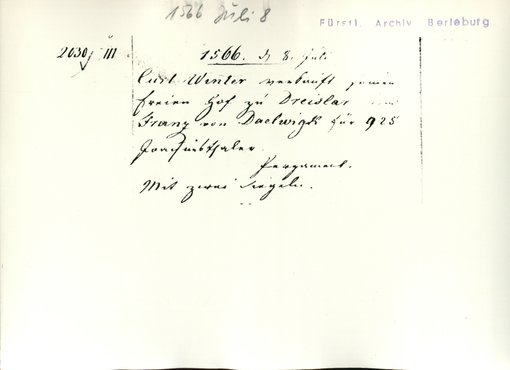 1566 Juli 8
Fürstl. Archiv Berleburg
2030, III
1566. d 8. Juli
Curt Winter verkauft seinen
freien Hof zu Dreislar
Franz von Daelwigk für 925
Joachimsthaler.
Pergament.
Mit zwei Siegeln.